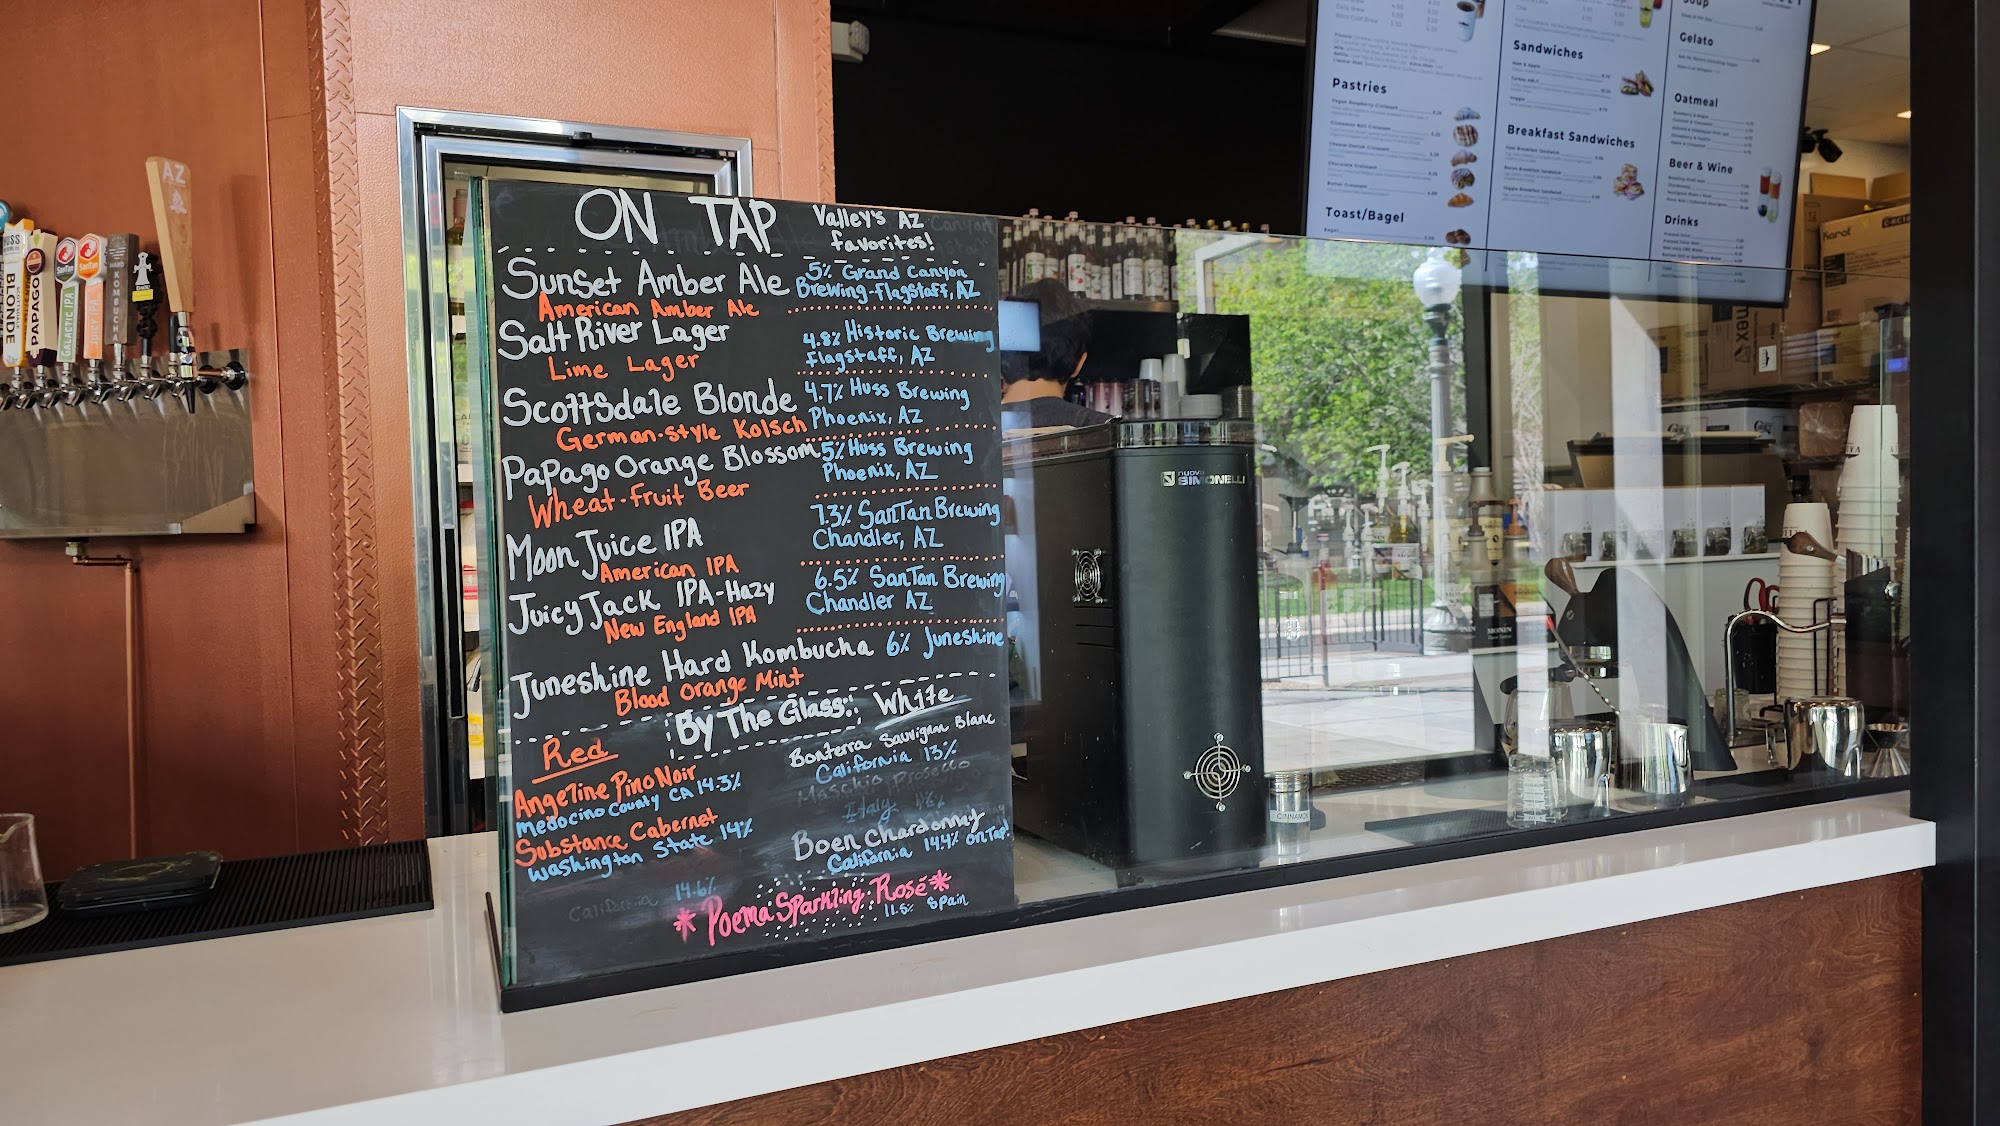 ON TAP
Valley's AZ
favorites!
Sunset Amber Ale
5% Grand Canyon
Brewing-Flagstaff, AZ
American Amber Ale
Salt River Lager
4.8% Historic Brewing
Flagstaff, AZ
Lime Lager
Scottsdale Blonde
4.7% Huss Brewing
Phoenix, AZ
German-style Kolsch
Papago Orange Blossom
5% Huss Brewing
Phoenix, AZ
Wheat-Fruit Beer
Moon Juice IPA
7.3% SanTan Brewing
Chandler, AZ
American IPA
Juicy Jack IPA-Hazy
6.5% SanTan Brewing
Chandler AZ
New England IPA
Juneshine Hard Kombucha 6% Juneshine
Blood Orange Mint
By The Glass:
Red
Angeline Pino Noir
Medocino County CA 14.3%
Substance Cabernet
Washington State 14%
California 14.6%
White
Bonterra Sauvignon Blanc
California 13%
Maschio Prosecco
Italy 11%
Boen Chardonnay
California 14.4% on Tap!
*Poema Sparkling Rosé*
11.5% Spain
AZ
BLONDE
PAPAGO
SanTan
GALACTIC IPA
SanTan
JUICY IPA
HARD
KOMBUCHA
nuova
SIMONELLI
CINNAMON
MONIN
Pastries
Vegan Raspberry Croissant
Cheese Danish Croissant
Chocolate Croissant
Butter Croissant
Toast/Bagel
Bagel
Sandwiches
Ham & Apple
Turkey BBLT
Veggie
Breakfast Sandwiches
Ham Breakfast Sandwich
Bacon Breakfast Sandwich
Veggie Breakfast Sandwich
Soup
Gelato
Oatmeal
Beer & Wine
Drinks
Karat